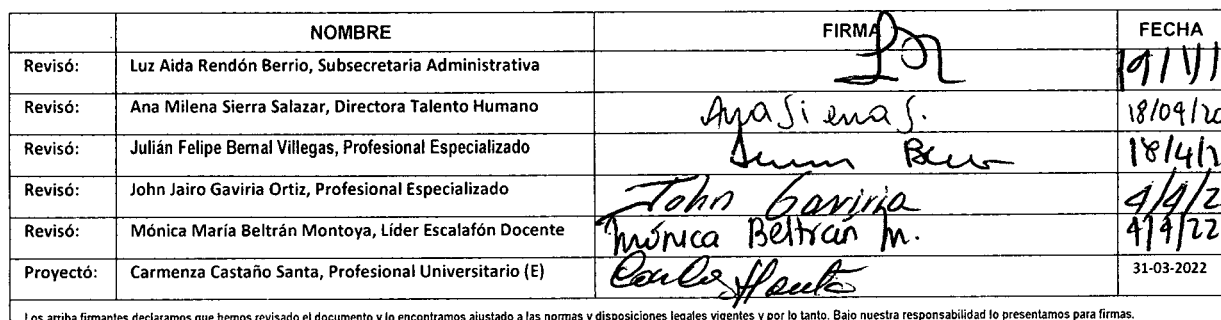 NOMBRE FIRMA FECHA
Revisó: Luz Aida Rendón Berrio, Subsecretaria Administrativa
Revisó: Ana Milena Sierra Salazar, Directora Talento Humano Ana Sierra S. 18/04/20
Revisó: Julián Felipe Bernal Villegas, Profesional Especializado 18/4/
Revisó: John Jairo Gaviria Ortiz, Profesional Especializado John Gaviria 4/4/2
Revisó: Mónica María Beltrán Montoya, Líder Escalafón Docente Mónica Beltrán M. 4/4/22
Proyectó: Carmenza Castaño Santa, Profesional Universitario (E) 31-03-2022
Los arriba firmantes declaramos que hemos revisado el documento y lo encontramos ajustado a las normas y disposiciones legales vigentes y por lo tanto. Bajo nuestra responsabilidad lo presentamos para firmas.